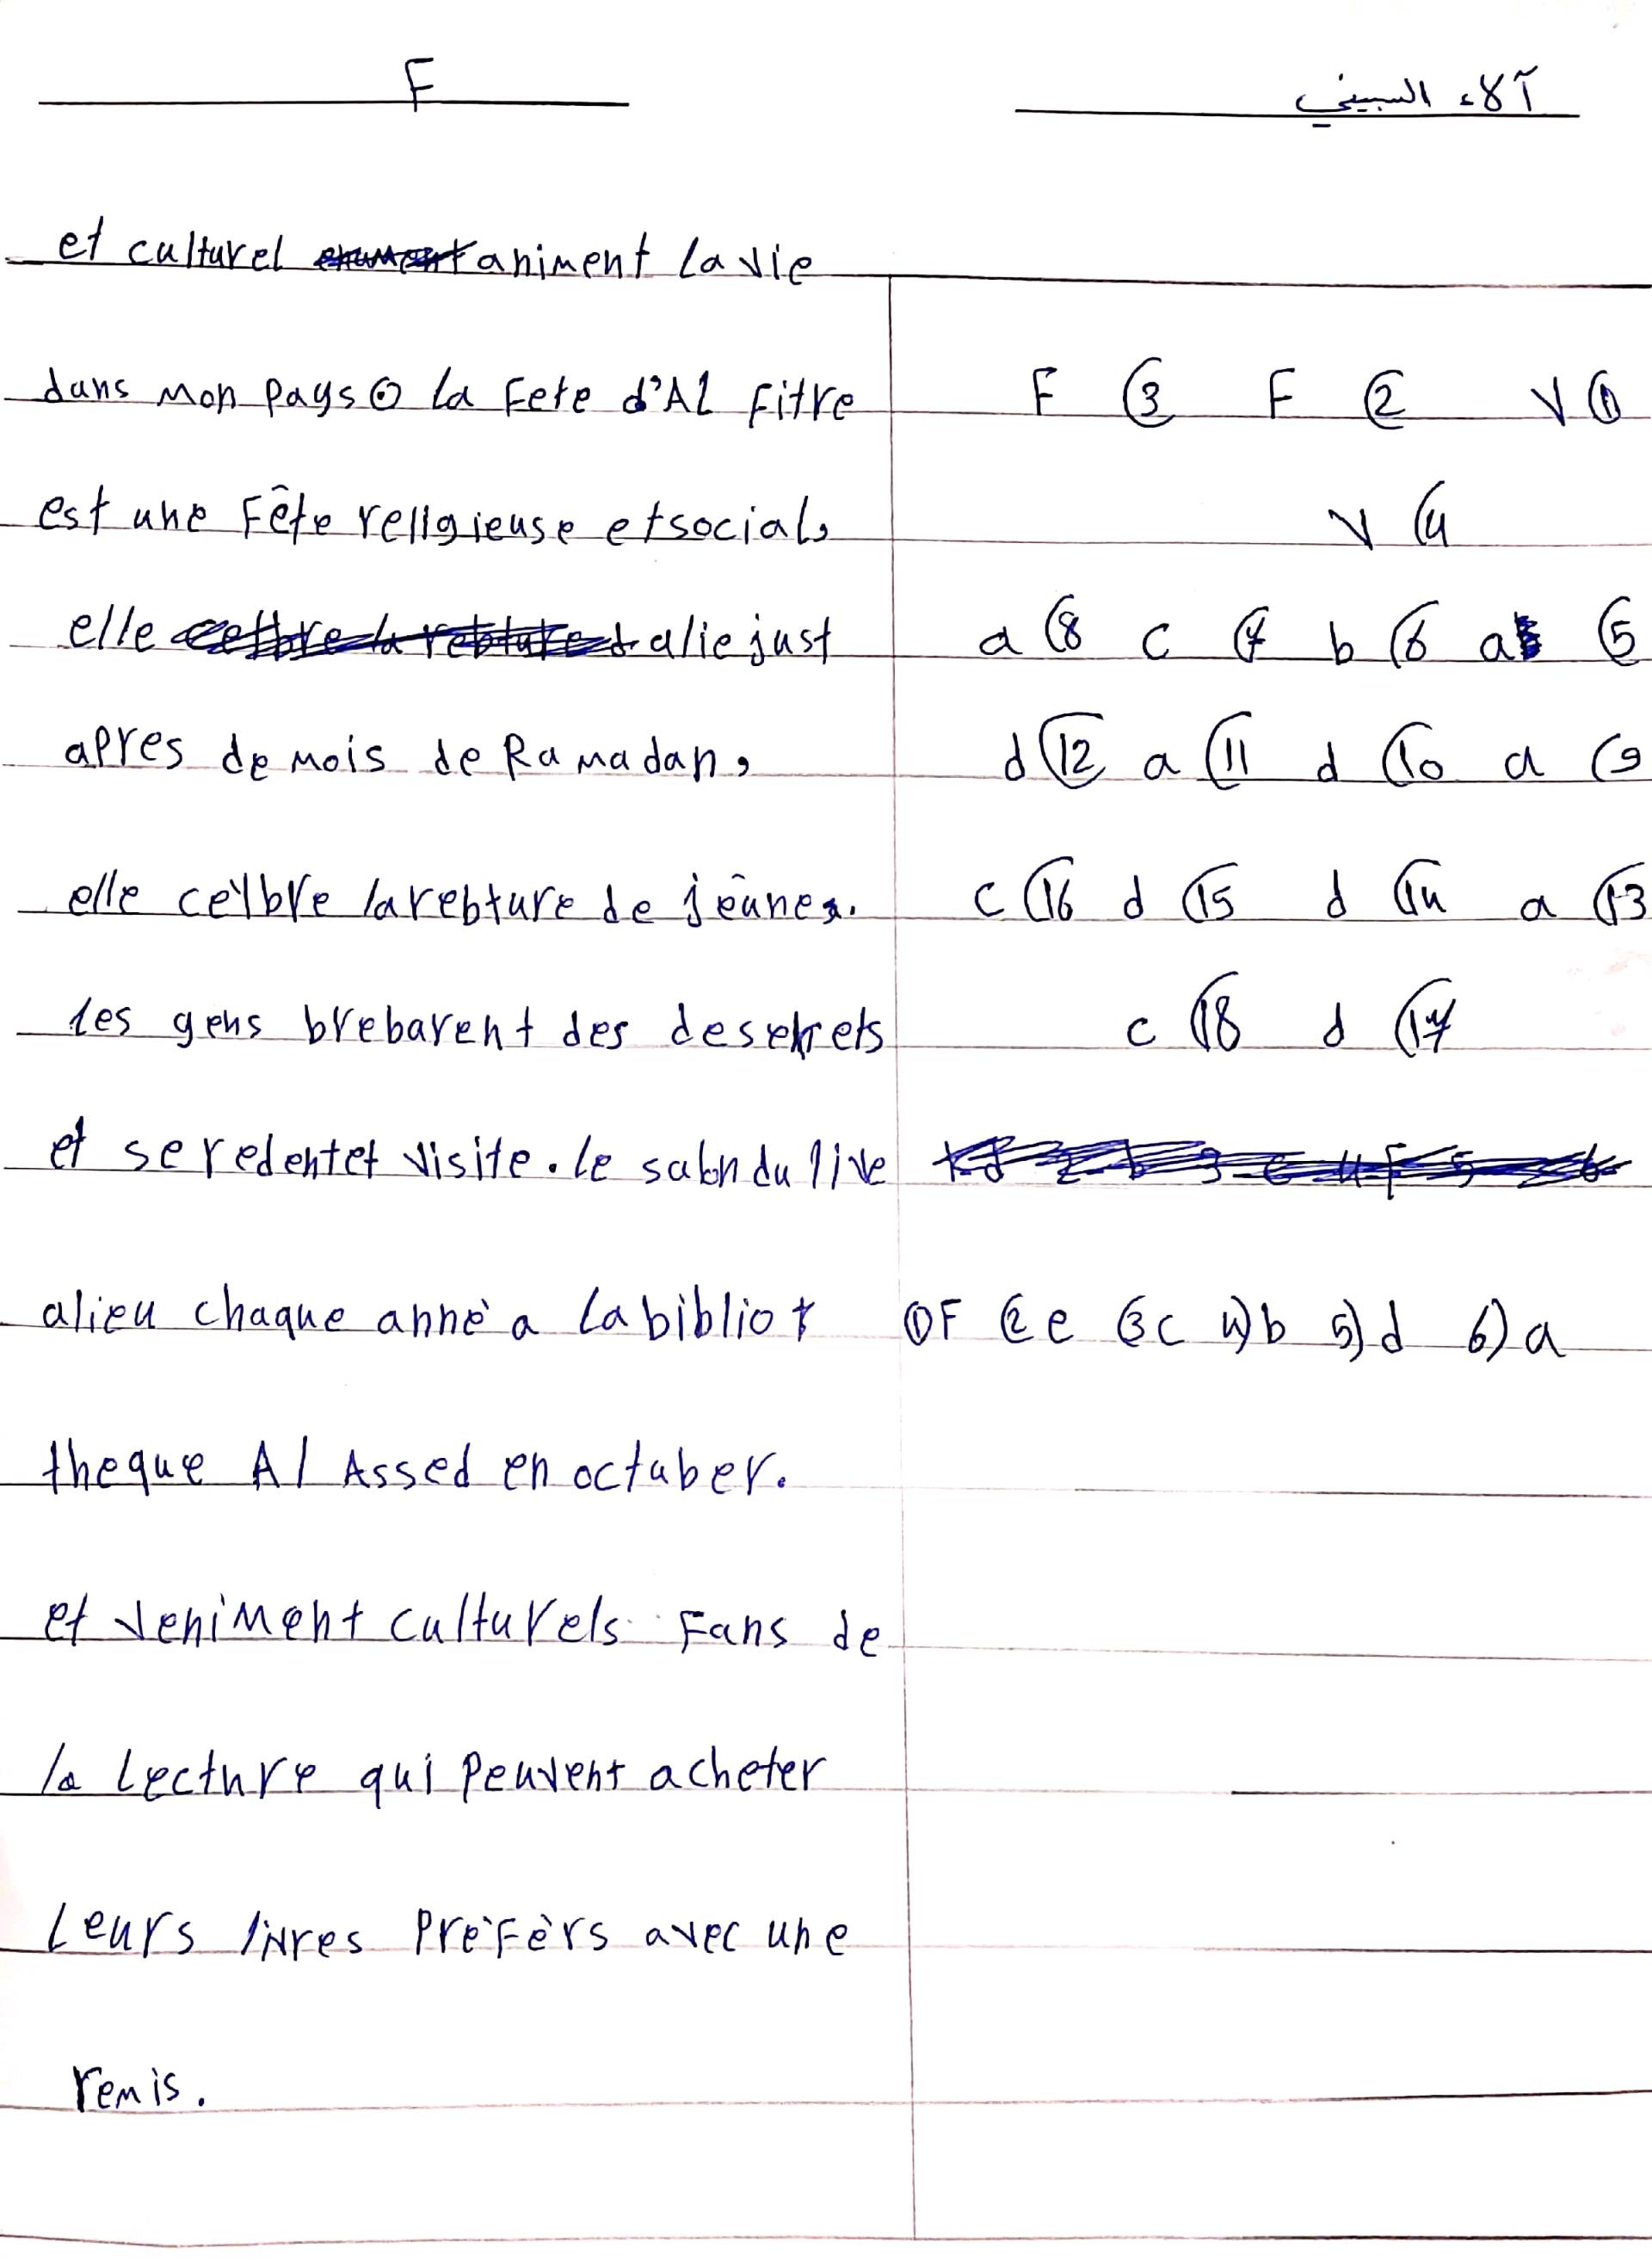 F
آلاء السبيني
et culturel animent la vie
dans mon pays. la Fete d'Al Fitre
est une Fête rellgieuse et social,
elle a lie just
apres de mois de Ramadan,
elle celbre la rebture de jeûnes.
les gens brebarent des deserets
et se redentet visite. le salon du live
a lieu chaque anné a la bibliot
theque Al Assed en octuber.
et veniment culturels Fans de
la Lecture qui peuvent acheter
Leurs livres Préférs avec une
remis.
F 3 F 2 V 1
V 4
a 8 c 7 b 6 a 5
d 12 a 11 d 10 a 9
c 16 d 15 d 14 a 13
c 18 d 17
1 F 2 e 3 c 4) b 5) d 6) a